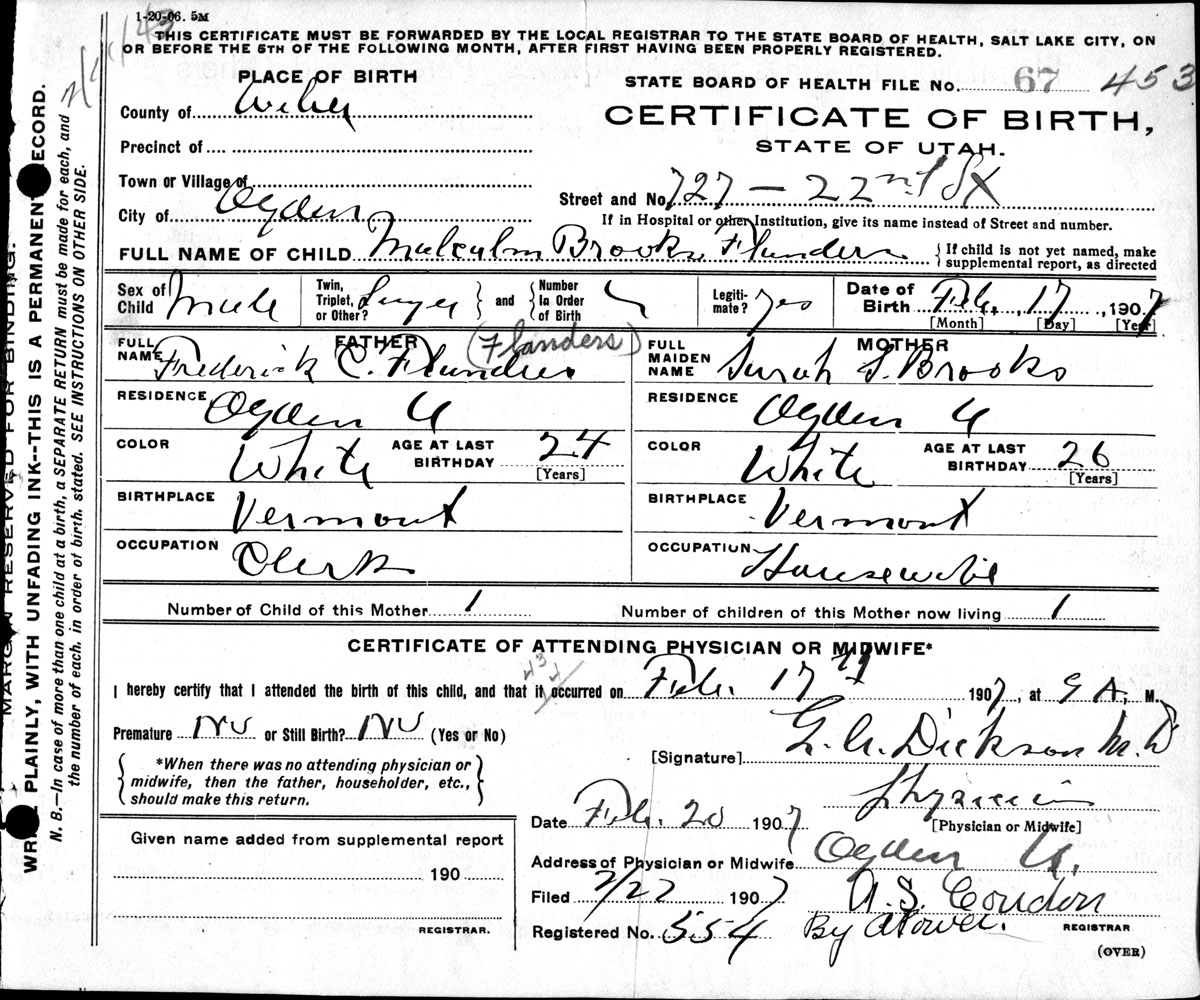 1-20-06. 5M
THIS CERTIFICATE MUST BE FORWARDED BY THE LOCAL REGISTRAR TO THE STATE BOARD OF HEALTH, SALT LAKE CITY, ON
OR BEFORE THE 5TH OF THE FOLLOWING MONTH, AFTER FIRST HAVING BEEN PROPERLY REGISTERED.
PLACE OF BIRTH
STATE BOARD OF HEALTH FILE No. 67 453
County of Weber
CERTIFICATE OF BIRTH,
Precinct of
STATE OF UTAH.
Town or Village of
Street and No. 727 — 22nd St
City of Ogden
If in Hospital or other Institution, give its name instead of Street and number.
FULL NAME OF CHILD Malcolm Brooks Flanders {If child is not yet named, make supplemental report, as directed
Sex of Child Male Twin, Triplet, or Other? and Number In Order of Birth Legitimate? Yes Date of Birth Feb. 17, 1907
[Month] [Day] [Year]
FATHER (Flanders) MOTHER
FULL NAME Frederick C. Flanders FULL MAIDEN NAME Sarah S. Brooks
RESIDENCE Ogden U RESIDENCE Ogden U
COLOR White AGE AT LAST BIRTHDAY 24 [Years] COLOR White AGE AT LAST BIRTHDAY 26 [Years]
BIRTHPLACE Vermont BIRTHPLACE Vermont
OCCUPATION Clerk OCCUPATION Housewife
Number of Child of this Mother 1 Number of children of this Mother now living 1
CERTIFICATE OF ATTENDING PHYSICIAN OR MIDWIFE*
I hereby certify that I attended the birth of this child, and that it occurred on Feb. 17th 1907, at 9 A, M.
Premature No or Still Birth? No (Yes or No)
[Signature] G. A. Dickson M.D
*When there was no attending physician or
midwife, then the father, householder, etc.,
should make this return.
Physician
[Physician or Midwife]
Date Feb. 20 1907
Given name added from supplemental report
190
REGISTRAR.
Address of Physician or Midwife Ogden U.
Filed 2/27 1907 A. S. Condon
Registered No. 554 By REGISTRAR
(OVER)
MARGIN RESERVED FOR BINDING.
PLAINLY, WITH UNFADING INK--THIS IS A PERMANENT RECORD.
N. B.—In case of more than one child at a birth, a SEPARATE RETURN must be made for each, and
the number of each, in order of birth, stated. SEE INSTRUCTIONS ON OTHER SIDE.